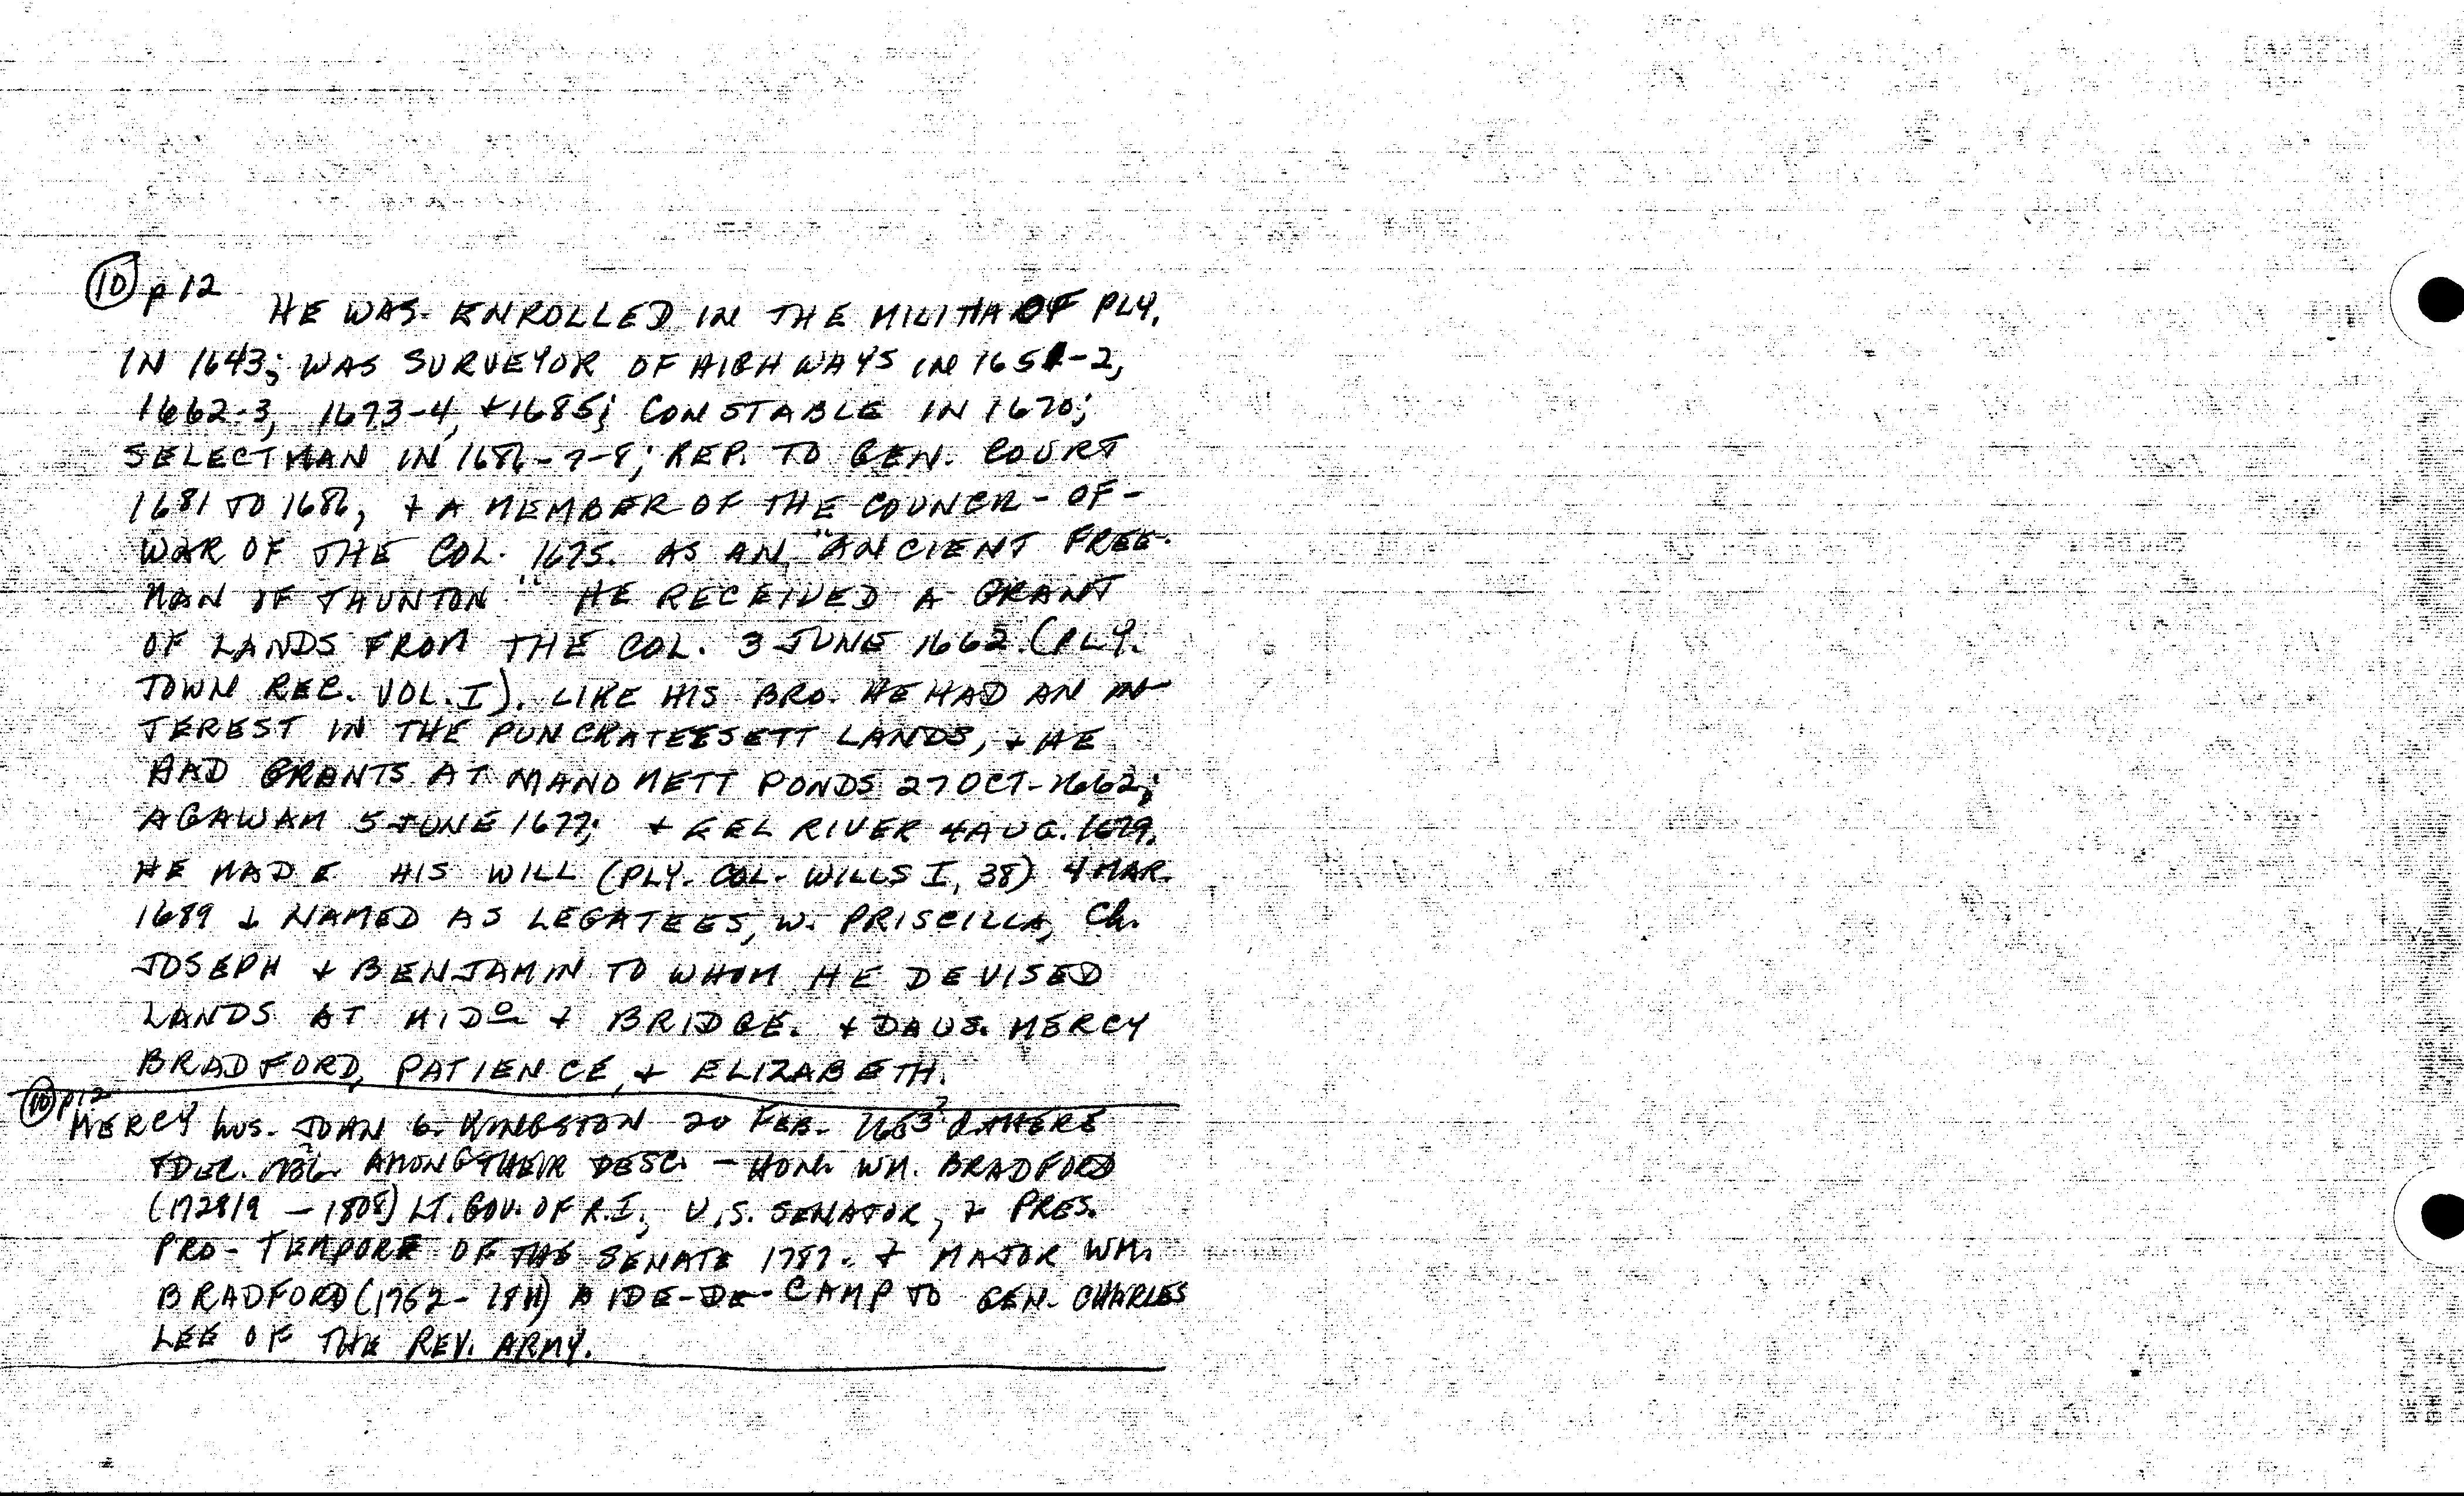 10 p 12
HE WAS ENROLLED IN THE MILITIA OF PLY.
IN 1643; WAS SURVEYOR OF HIGHWAYS IN 1651-2,
1662-3, 1673-4, + 1685; CONSTABLE IN 1670;
SELECTMAN IN 1686-7-8; REP. TO GEN. COURT
1681 TO 1686, + A MEMBER OF THE COUNCIL-OF-
WAR OF THE COL. 1675. AS AN "ANCIENT FREE-
MAN OF TAUNTON" HE RECEIVED A GRANT
OF LANDS FROM THE COL. 3 JUNE 1662. (PLY.
TOWN REC. VOL. I). LIKE HIS BRO. HE HAD AN IN-
TEREST IN THE PUNCKATEESETT LANDS, + HE
HAD GRANTS AT MANOMETT PONDS 27 OCT. 1662;
AGAWAM 5 JUNE 1677; + EEL RIVER 4 AUG. 1679.
HE MADE HIS WILL (PLY. COL. WILLS I, 38) 4 MAR.
1689 + NAMED AS LEGATEES, W. PRISCILLA, Ch.
JOSEPH + BENJAMIN TO WHOM HE DEVISED
LANDS AT MIDo + BRIDGE. + DAUS. MERCY
BRADFORD, PATIENCE, + ELIZABETH.
10 p 12
MERCY hus. JOHN b. KINGSTON 20 FEB. 1653? d. THERE
DEC. 1736. AMONG THEIR DESC. - HON. WM. BRADFORD
(1728/9 - 1808) LT. GOV. OF R.I., U.S. SENATOR, + PRES.
PRO-TEMPORE OF THE SENATE 1797. + MAJOR WM.
BRADFORD (1752-1811) AIDE-DE-CAMP TO GEN. CHARLES
LEE OF THE REV. ARMY.